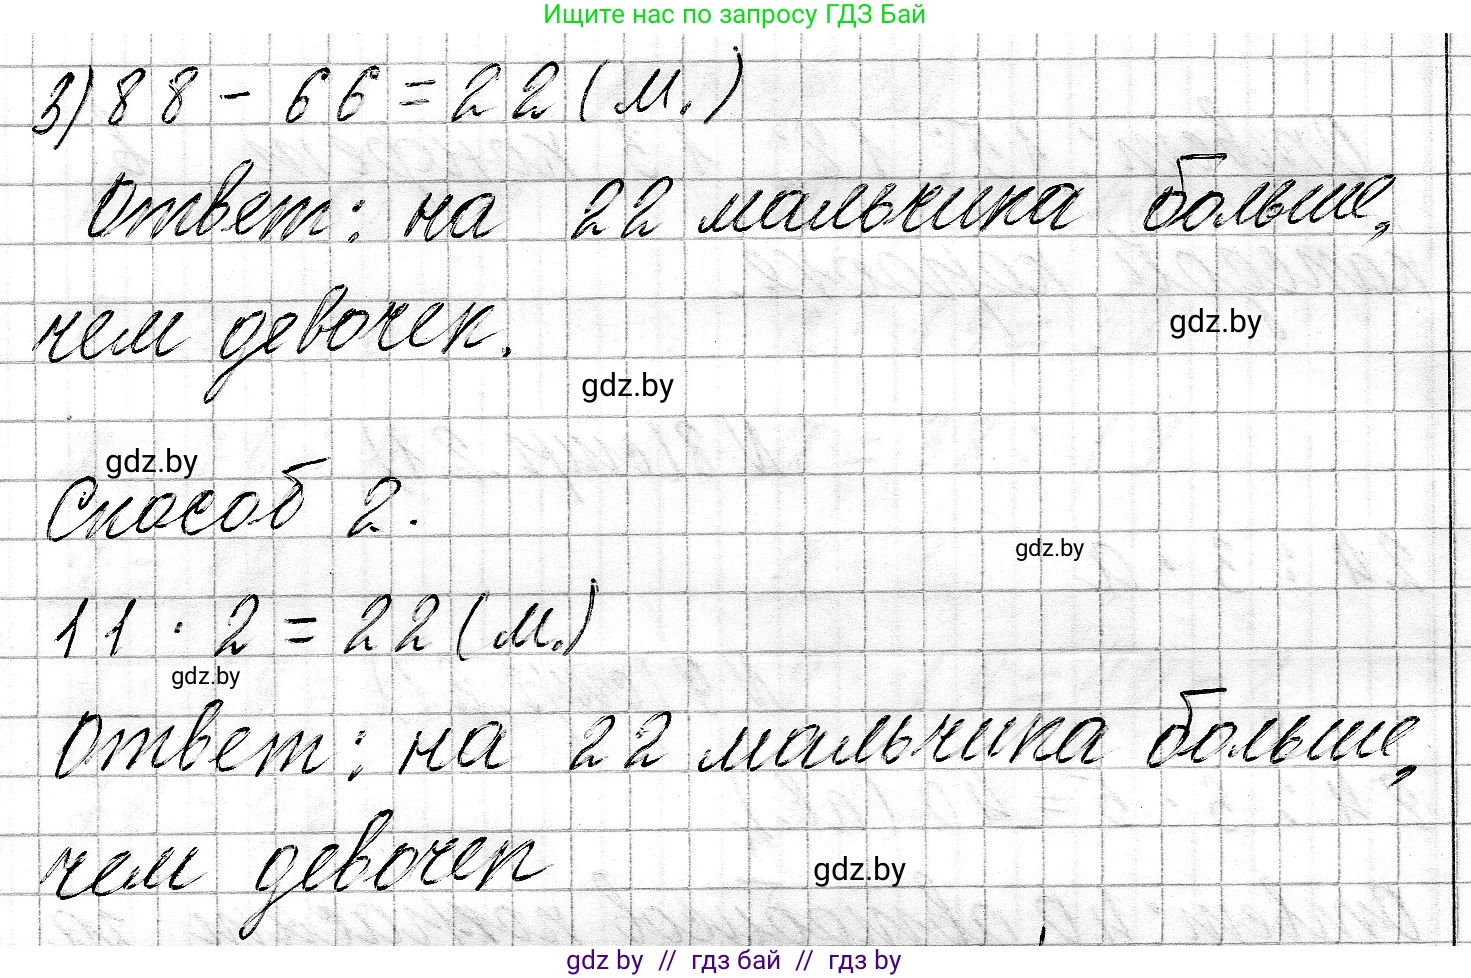 Ищите нас по запросу ГДЗ Бай
3) 88 - 66 = 22 (м.)
Ответ: на 22 мальчика больше,
чем девочек.
gdz.by
gdz.by
gdz.by
Способ 2.
gdz.by
11 · 2 = 22 (м.)
gdz.by
Ответ: на 22 мальчика больше,
чем девочек
gdz.by
gdz by // гдз бай // гдз by